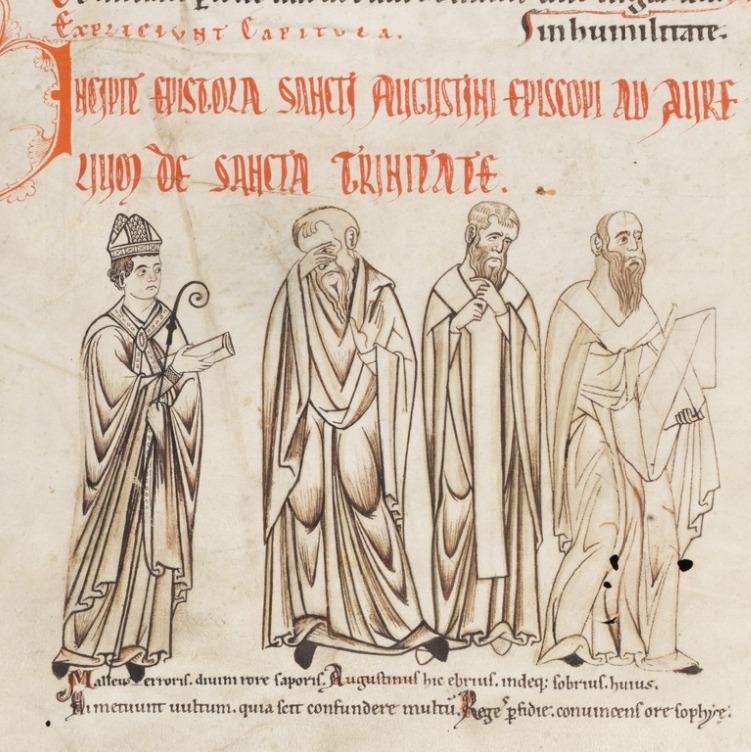 Expliciunt Capitula.
in humilitate.
Incipit epistola sancti Augustini episcopi ad Aure
lium de sancta Trinitate.
Malleus erroris. divini rore saporis. Augustinus hic ebrius. indeq; sobrius. huius.
Hi metuunt vultum. quia scit confundere multum. Rege pfidie. convincens ore sophye.